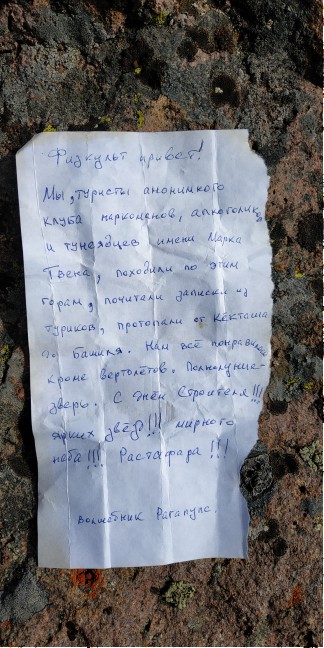 Физкульт привет!
Мы, туристы анонимного
клуба наркоманов, алкоголиков
и тунеядцев имени Марка
Твена, походили по этим
горам, почитали записки из
туриков, протопали от Кёкташа
до Башиля. Нам всё понравилось
кроме вертолётов. Полнолуние-
зверь. С Днём Строителя!!!
Ярких звёзд!!! мирного
неба!!! Растафара!!!
Волшебник Рагапупс.